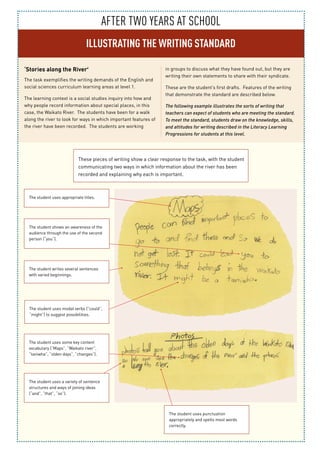 AFTER TWO YEARS AT SCHOOL
ILLUSTRATING THE WRITING STANDARD
‘Stories along the River’
The task exemplifies the writing demands of the English and
social sciences curriculum learning areas at level 1.
The learning context is a social studies inquiry into how and
why people record information about special places, in this
case, the Waikato River. The students have been for a walk
along the river to look for ways in which important features of
the river have been recorded. The students are working
in groups to discuss what they have found out, but they are
writing their own statements to share with their syndicate.
These are the student’s first drafts. Features of the writing
that demonstrate the standard are described below.
The following example illustrates the sorts of writing that
teachers can expect of students who are meeting the standard.
To meet the standard, students draw on the knowledge, skills,
and attitudes for writing described in the Literacy Learning
Progressions for students at this level.
These pieces of writing show a clear response to the task, with the student
communicating two ways in which information about the river has been
recorded and explaining why each is important.
The student uses appropriate titles.
The student shows an awareness of the
audience through the use of the second
person (“you”).
The student writes several sentences
with varied beginnings.
The student uses modal verbs (“could”,
“might”) to suggest possibilities.
The student uses some key content
vocabulary (“Maps”, “Waikato river”,
“taniwha”, “olden days”, “changes”).
The student uses a variety of sentence
structures and ways of joining ideas
(“and”, “that”, “so”).
Maps
People can find important places to
go to and find them and so we do
not get lost. It could lead you to
something that belongs in the Waikato
river. It might be a taniwha.
Photos
photos tell you about the olden days of the Waikato
so we can see the changes of the river and the
along the river.
The student uses punctuation
appropriately and spells most words
correctly.